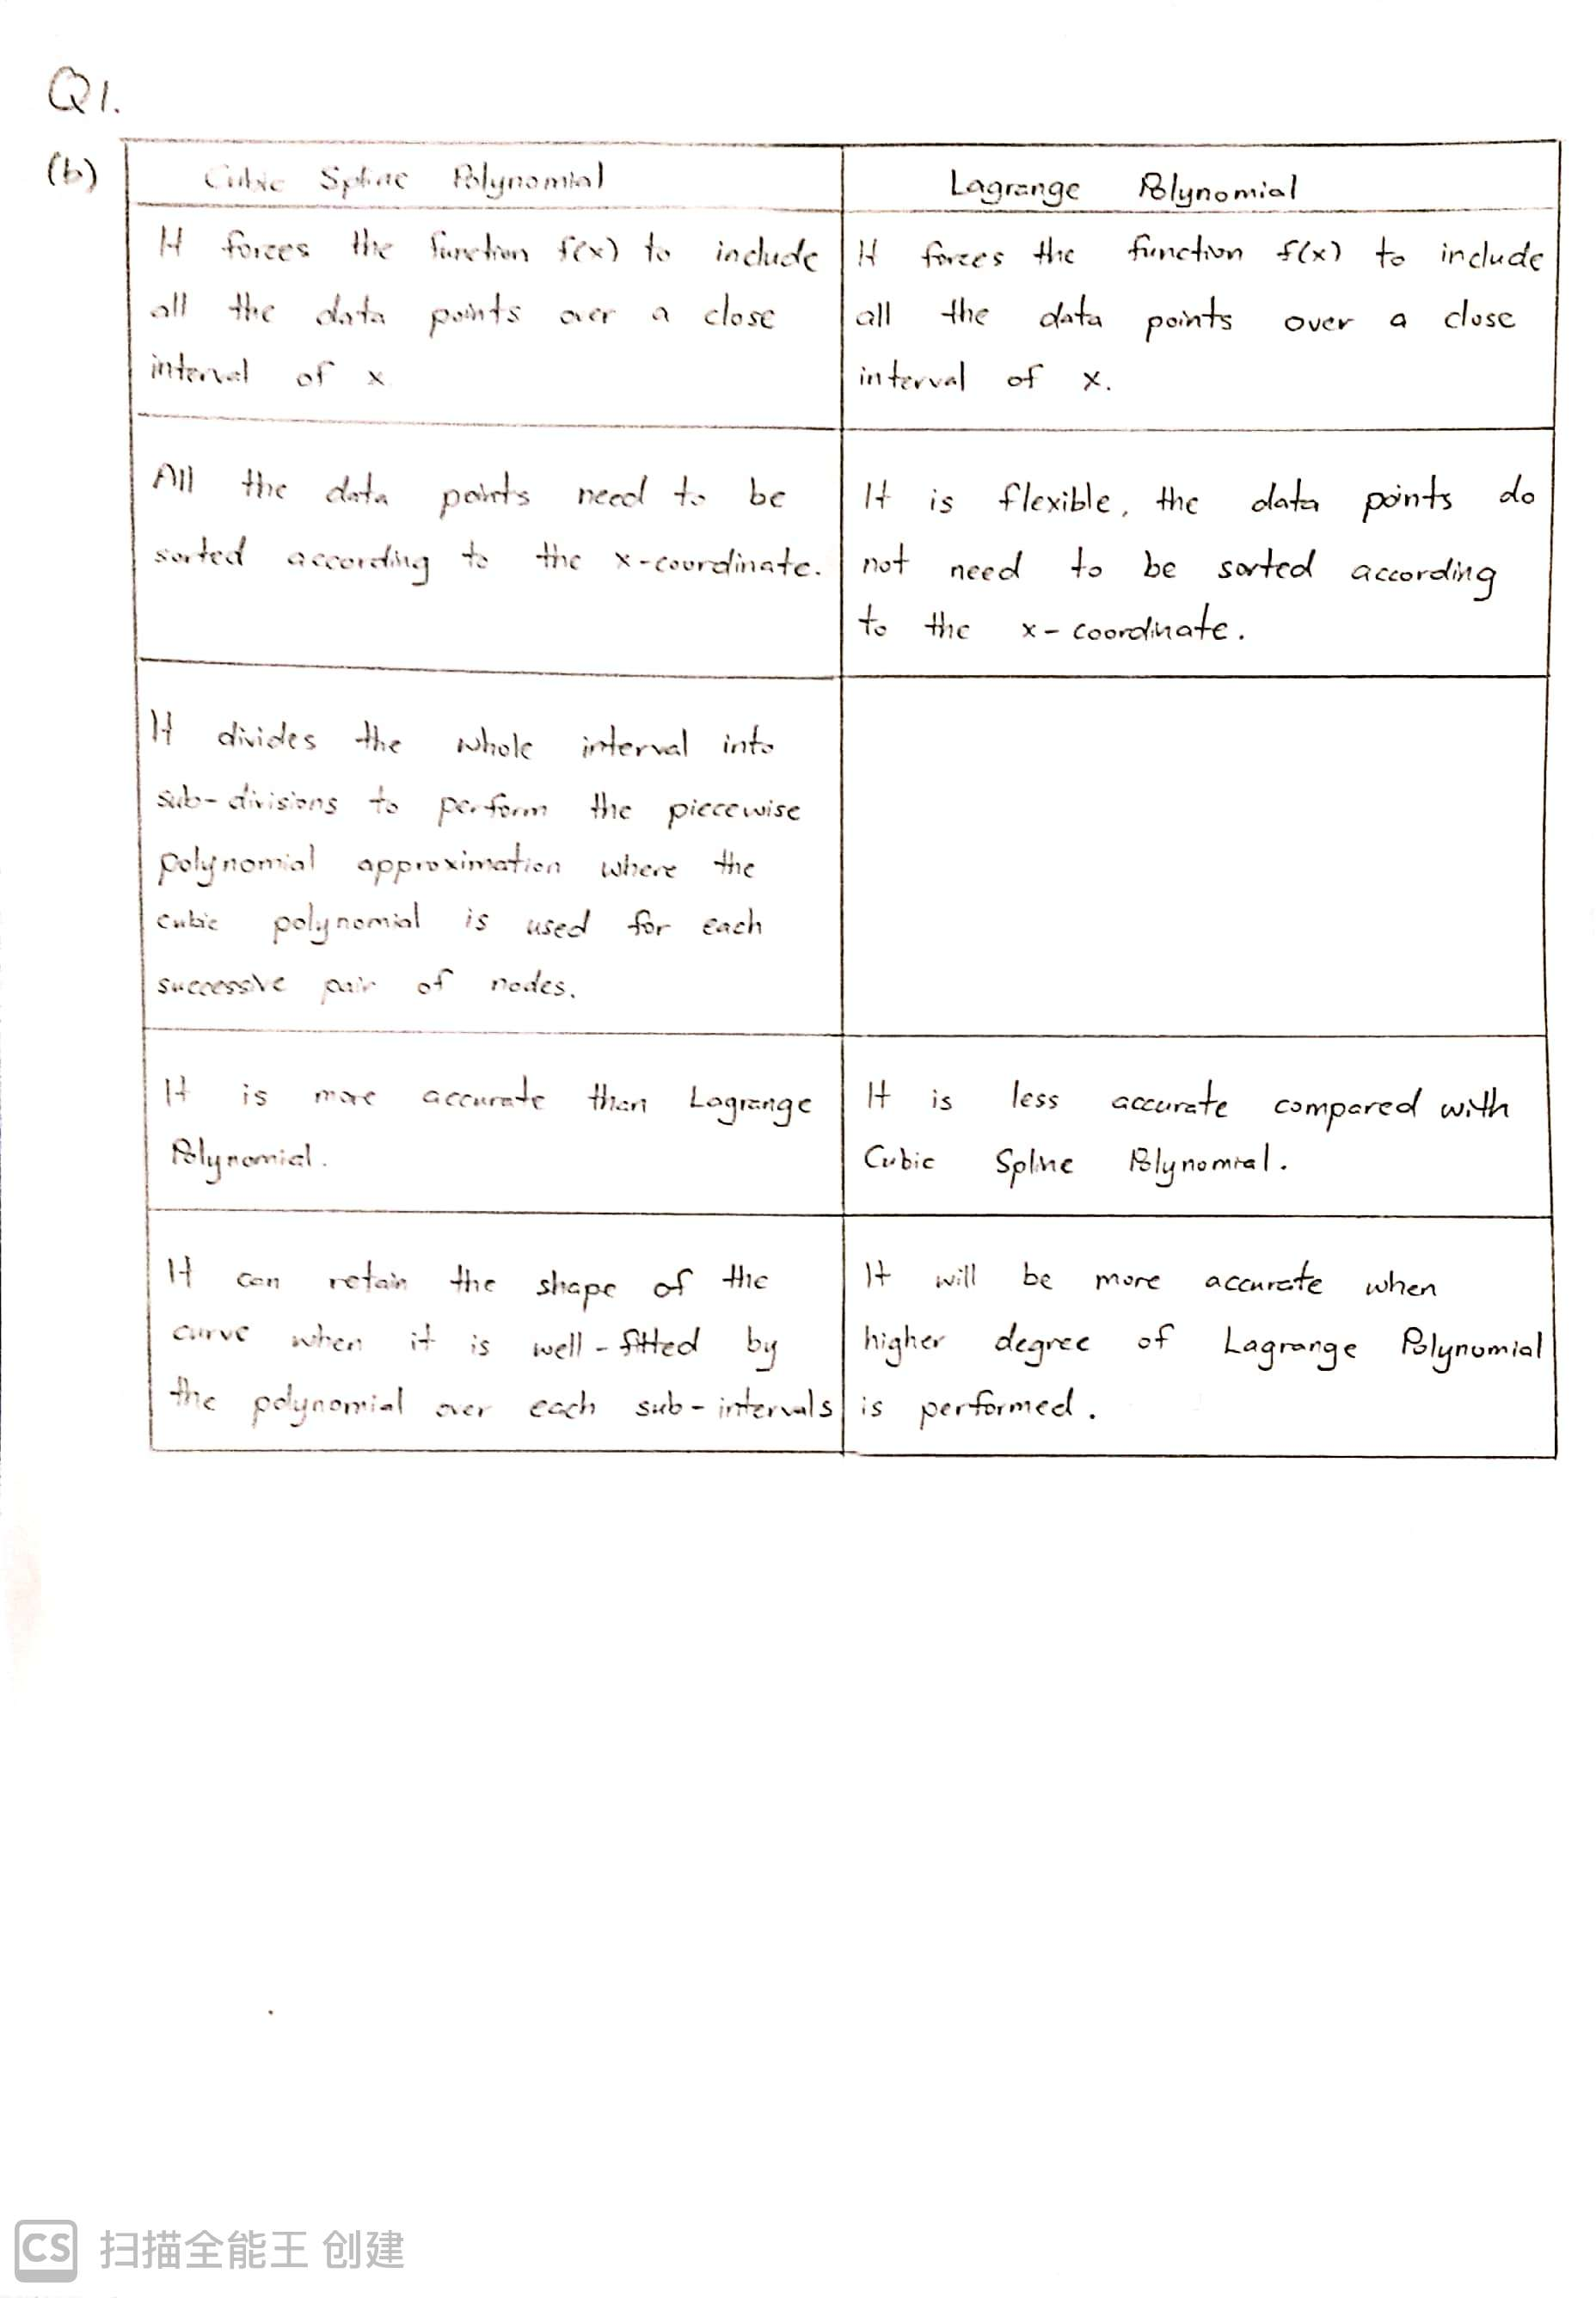 Q1.
(b)
Cubic Spline Polynomial
Lagrange Polynomial
It forces the function f(x) to include
all the data points over a close
interval of x
It forces the function f(x) to include
all the data points over a close
interval of x.
All the data points need to be
sorted according to the x-courdinate.
It is flexible, the data points do
not need to be sorted according
to the x-coordinate.
It divides the whole interval into
sub-divisions to perform the piecewise
polynomial approximation where the
cubic polynomial is used for each
successive pair of nodes.
It is more accurate than Lagrange
Polynomial.
It is less accurate compared with
Cubic Spline Polynomial.
It can retain the shape of the
curve when it is well-fitted by
the polynomial over each sub-intervals
It will be more accurate when
higher degree of Lagrange Polynomial
is performed.
CS 扫描全能王 创建